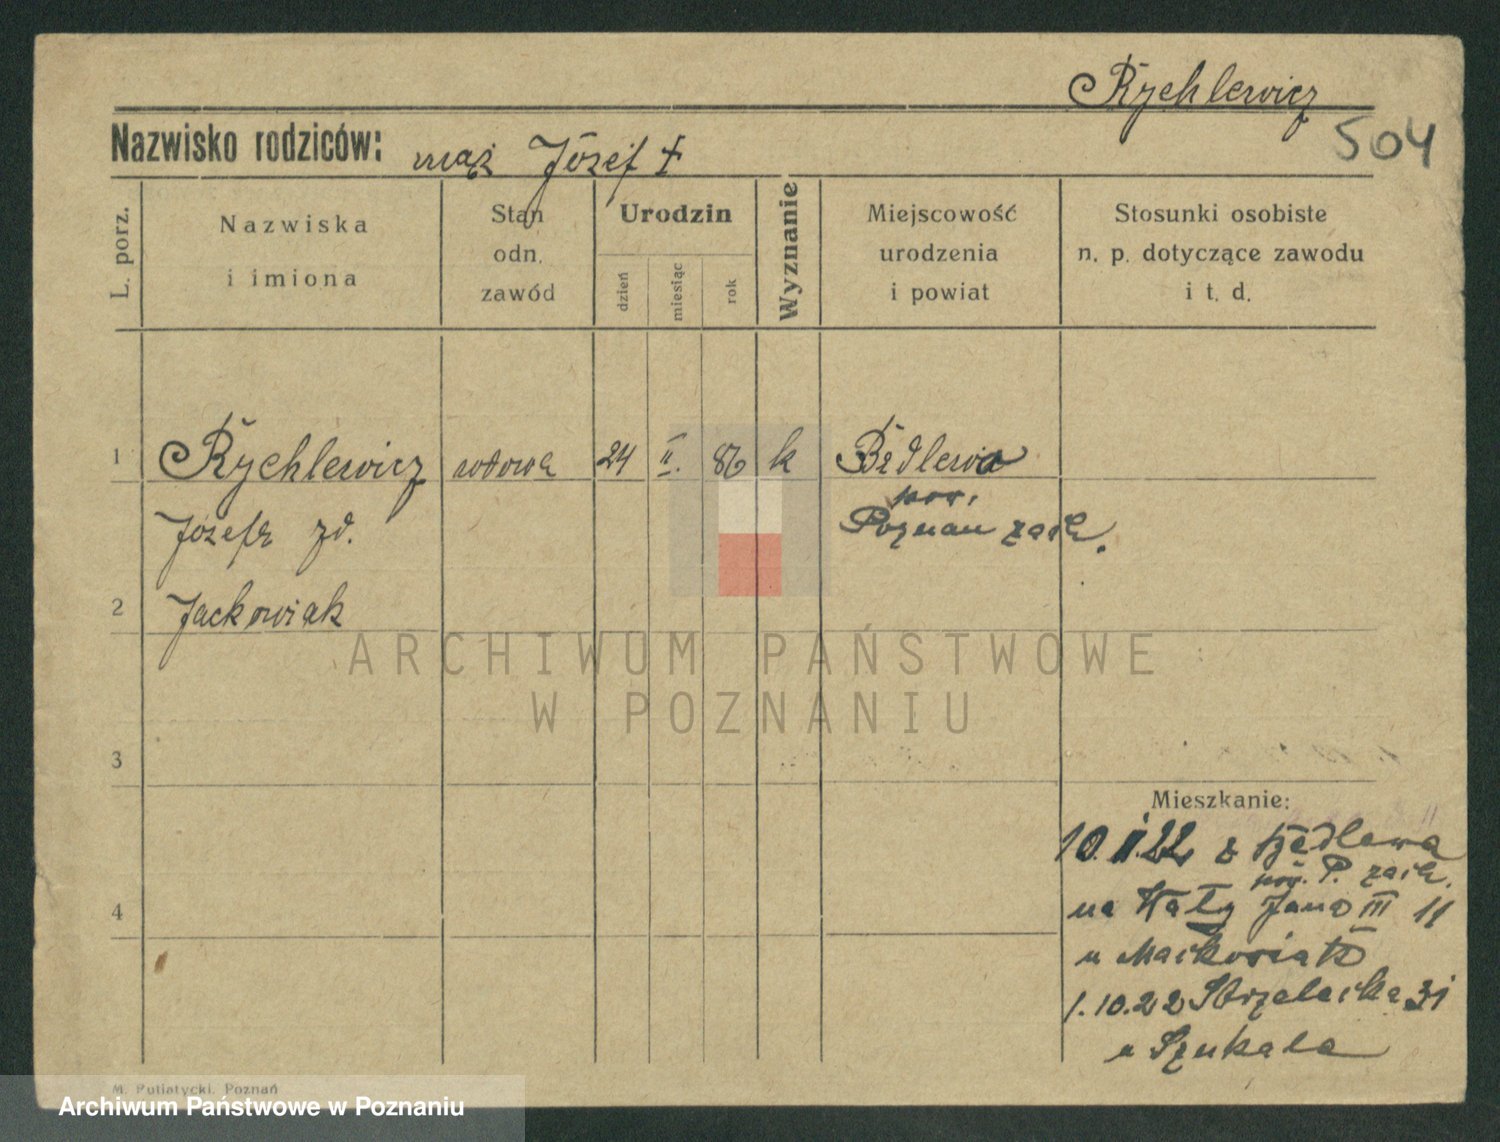 Rychlewicz
504
Nazwisko rodziców: mąż Józef †
L. porz.
Nazwiska
i imiona
Stan
odn.
zawód
Urodzin
dzień
miesiąc
rok
Wyznanie
Miejscowość
urodzenia
i powiat
Stosunki osobiste
n. p. dotyczące zawodu
i t. d.
1 Rychlewicz wdowa 24 II. 86 k
pow.
Józefa zd. Poznań zach.
2 Jackowiak
ARCHIWUM PAŃSTWOWE
W POZNANIU
3
Mieszkanie:
10. II. 22 z
pow. P. zach.
4
na Wały Jana III 11
u
1.10.22 Strzelecka 31
u Szukala
M. Putiatycki, Poznań
Archiwum Państwowe w Poznaniu